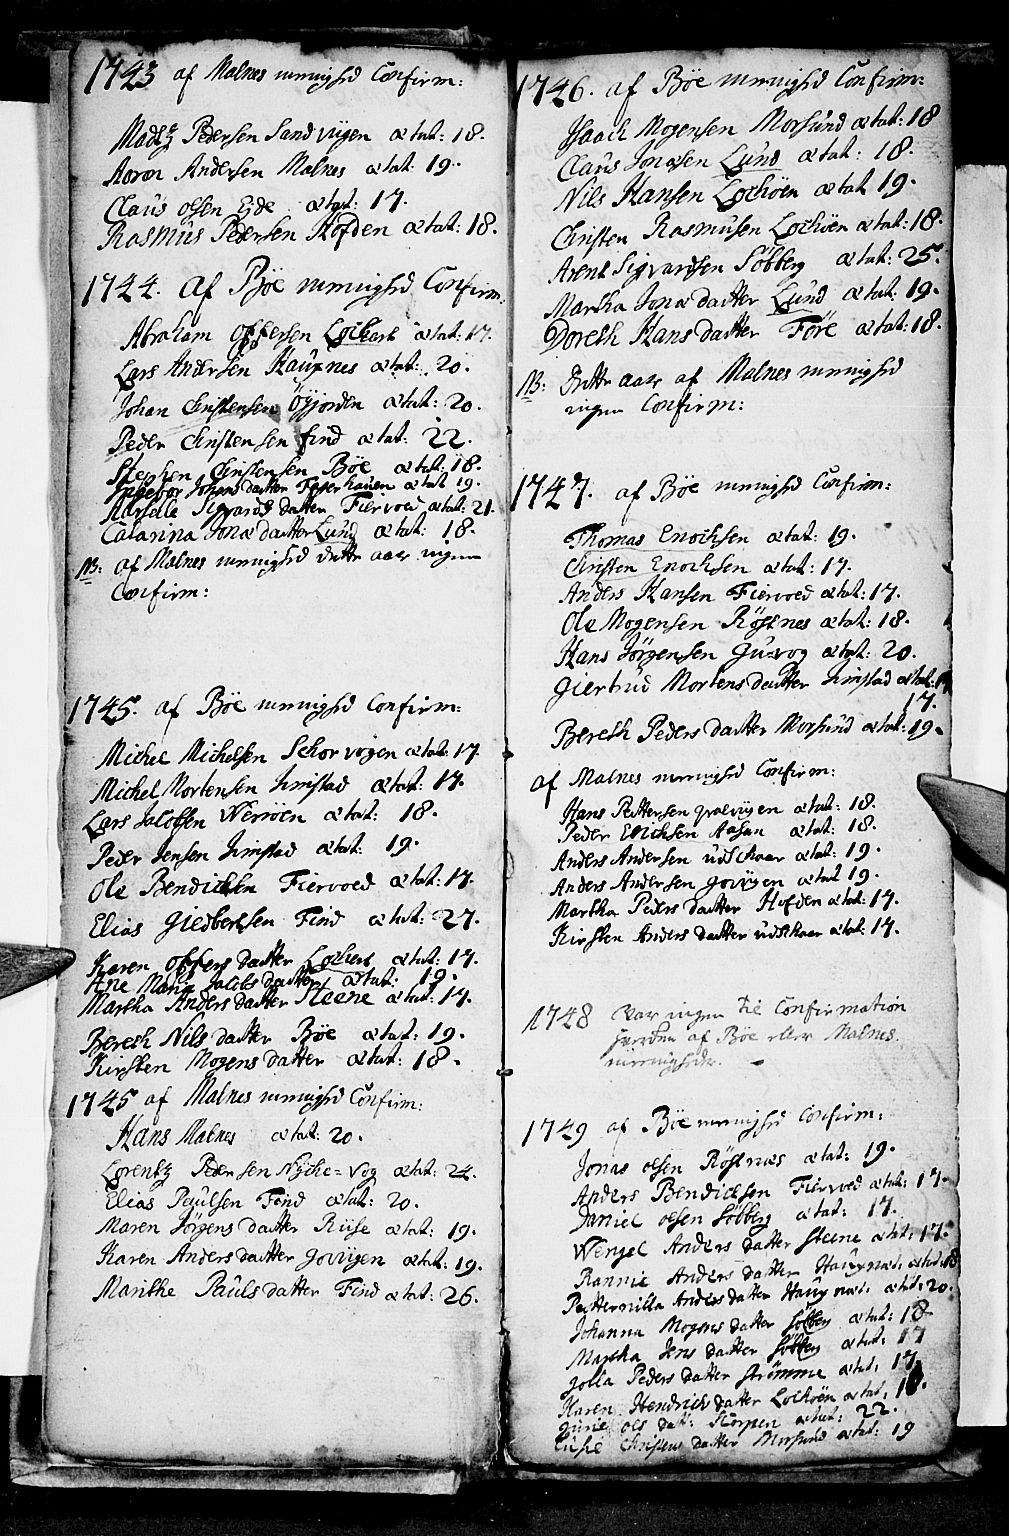 1743 af Malnes menighd Confirm:
Madtz Pedersen Sandviigen ætat: 18.
Aaron Andersen Malnes ætat: 19.
Claus olsen Eide ætat: 17.
Rasmus Pedersen Hofden ætat: 18.
1744. Af Böe menighd Confirm:
Abraham offersen Lockert ætat: 17.
Lars Andersen Hauxnes ætat: 20.
Johan Christensen Öyjorden ætat: 20.
Peder Christensen find ætat: 22.
Stephen Christensen Böe ætat: 18.
Ingebor Johans datter ætat 19.
Sigvards datter Fiervoed ætat: 21.
Catarina Jonæ datter Lund ætat: 18.
NB: af Malnes menighd dette aar ingen
Confirm:
1745. af Böe menighd Confirm:
Michel Michelsen Schorvogen ætat: 17
Michel Mortensen Limstad ætat: 17.
Lars Jacobsen Werröen ætat: 18.
Peder Jensen Limstad ætat: 19.
Ole Bendicksen Fiervoed ætat: 17.
Elias Giedbertsen Find ætat: 27.
Karen offers datter Lockert ætat: 17.
Ane Maria Jacobs datter ætat: 19.
Martha Anders datter Steene ætat: 17.
Bereth Nils datter Böe ætat: 19.
Kirsten Mogens datter ætat: 18.
1745 af Malnes menighd Confirm:
Hans Malnes ætat: 20.
Lorentz Pedersen Nyche=vog ætat: 24.
Elias Paulsen Find ætat: 20.
Maren Jörgens datter Riise ætat: 19.
Karen Anders datter Govigen ætat: 19.
Marithe Pauls datter Find ætat: 26.
1746. af Böe menighd Confirm:
Isaach Mogensen Morsund ætat: 18
Claus Jonæsen Lund ætat: 18.
Nils Hansen Lochöen ætat 19.
Christen Rasmusen Lochöen ætat: 18.
Arent Sigvardsen Söbberg ætat: 25.
Martha Jonæ datter Lund ætat: 19.
Doreth Hans datter Före ætat: 18.
NB: Dette aar af Malnes menighd
ingen Confirm:
1747. af Böe menighd Confirm:
Thomas Enochsen ætat: 19.
Christen Enochsen ætat: 17.
Anders Hansen Fiervoed ætat: 17.
Ole Mogensen Röstnes ætat: 18.
Hans Jörgensen Guvog ætat: 20.
Giertrud Mortens datter Limstad ætat:
17.
Bereth Peders datter Morsund ætat: 19.
af Malnes menighd Confirm:
Hans Pettersen ætat: 18.
Peder Erichsen Aasan ætat: 18.
Anders Andersen udschaar ætat: 19.
Anders Andersen Goviigen ætat 19.
Martha Peders datter Hofden ætat: 17.
Kirsten Anders datter udschaar ætat: 17.
1748 Var ingen til Confirmation
hverken af Böe eller Malnes
menigheder.
1749 af Böe menighd Confirm:
Jonas olsen Röstnæs ætat: 19.
Anders Bendicksen Fiervoed ætat: 17.
Daniel olsen Söbberg ætat: 17.
Wengel Anders datter Steene ætat: 17.
Rannie Anders datter Hauxnæs ætat: 18
Petternilla Anders datter Hauxnæs ætat: 20.
Johanna Mogens datter Söbberg ætat: 18
Martha Jens datter Söbberg ætat: 17
Golla Peders datter Strömme ætat: 17.
Karen Hendrich datter Lochöen ætat: 18.
Gurie ols dat: Skorpen ætat: 22.
Lusie Christens datter Morsund ætat: 19